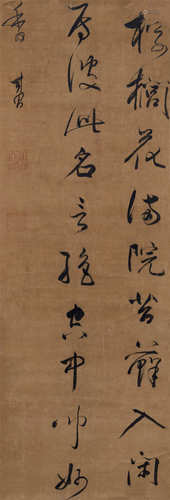 棕榈花满院苔藓入闲
房彼此名言绝空中闻妙
香 其昌